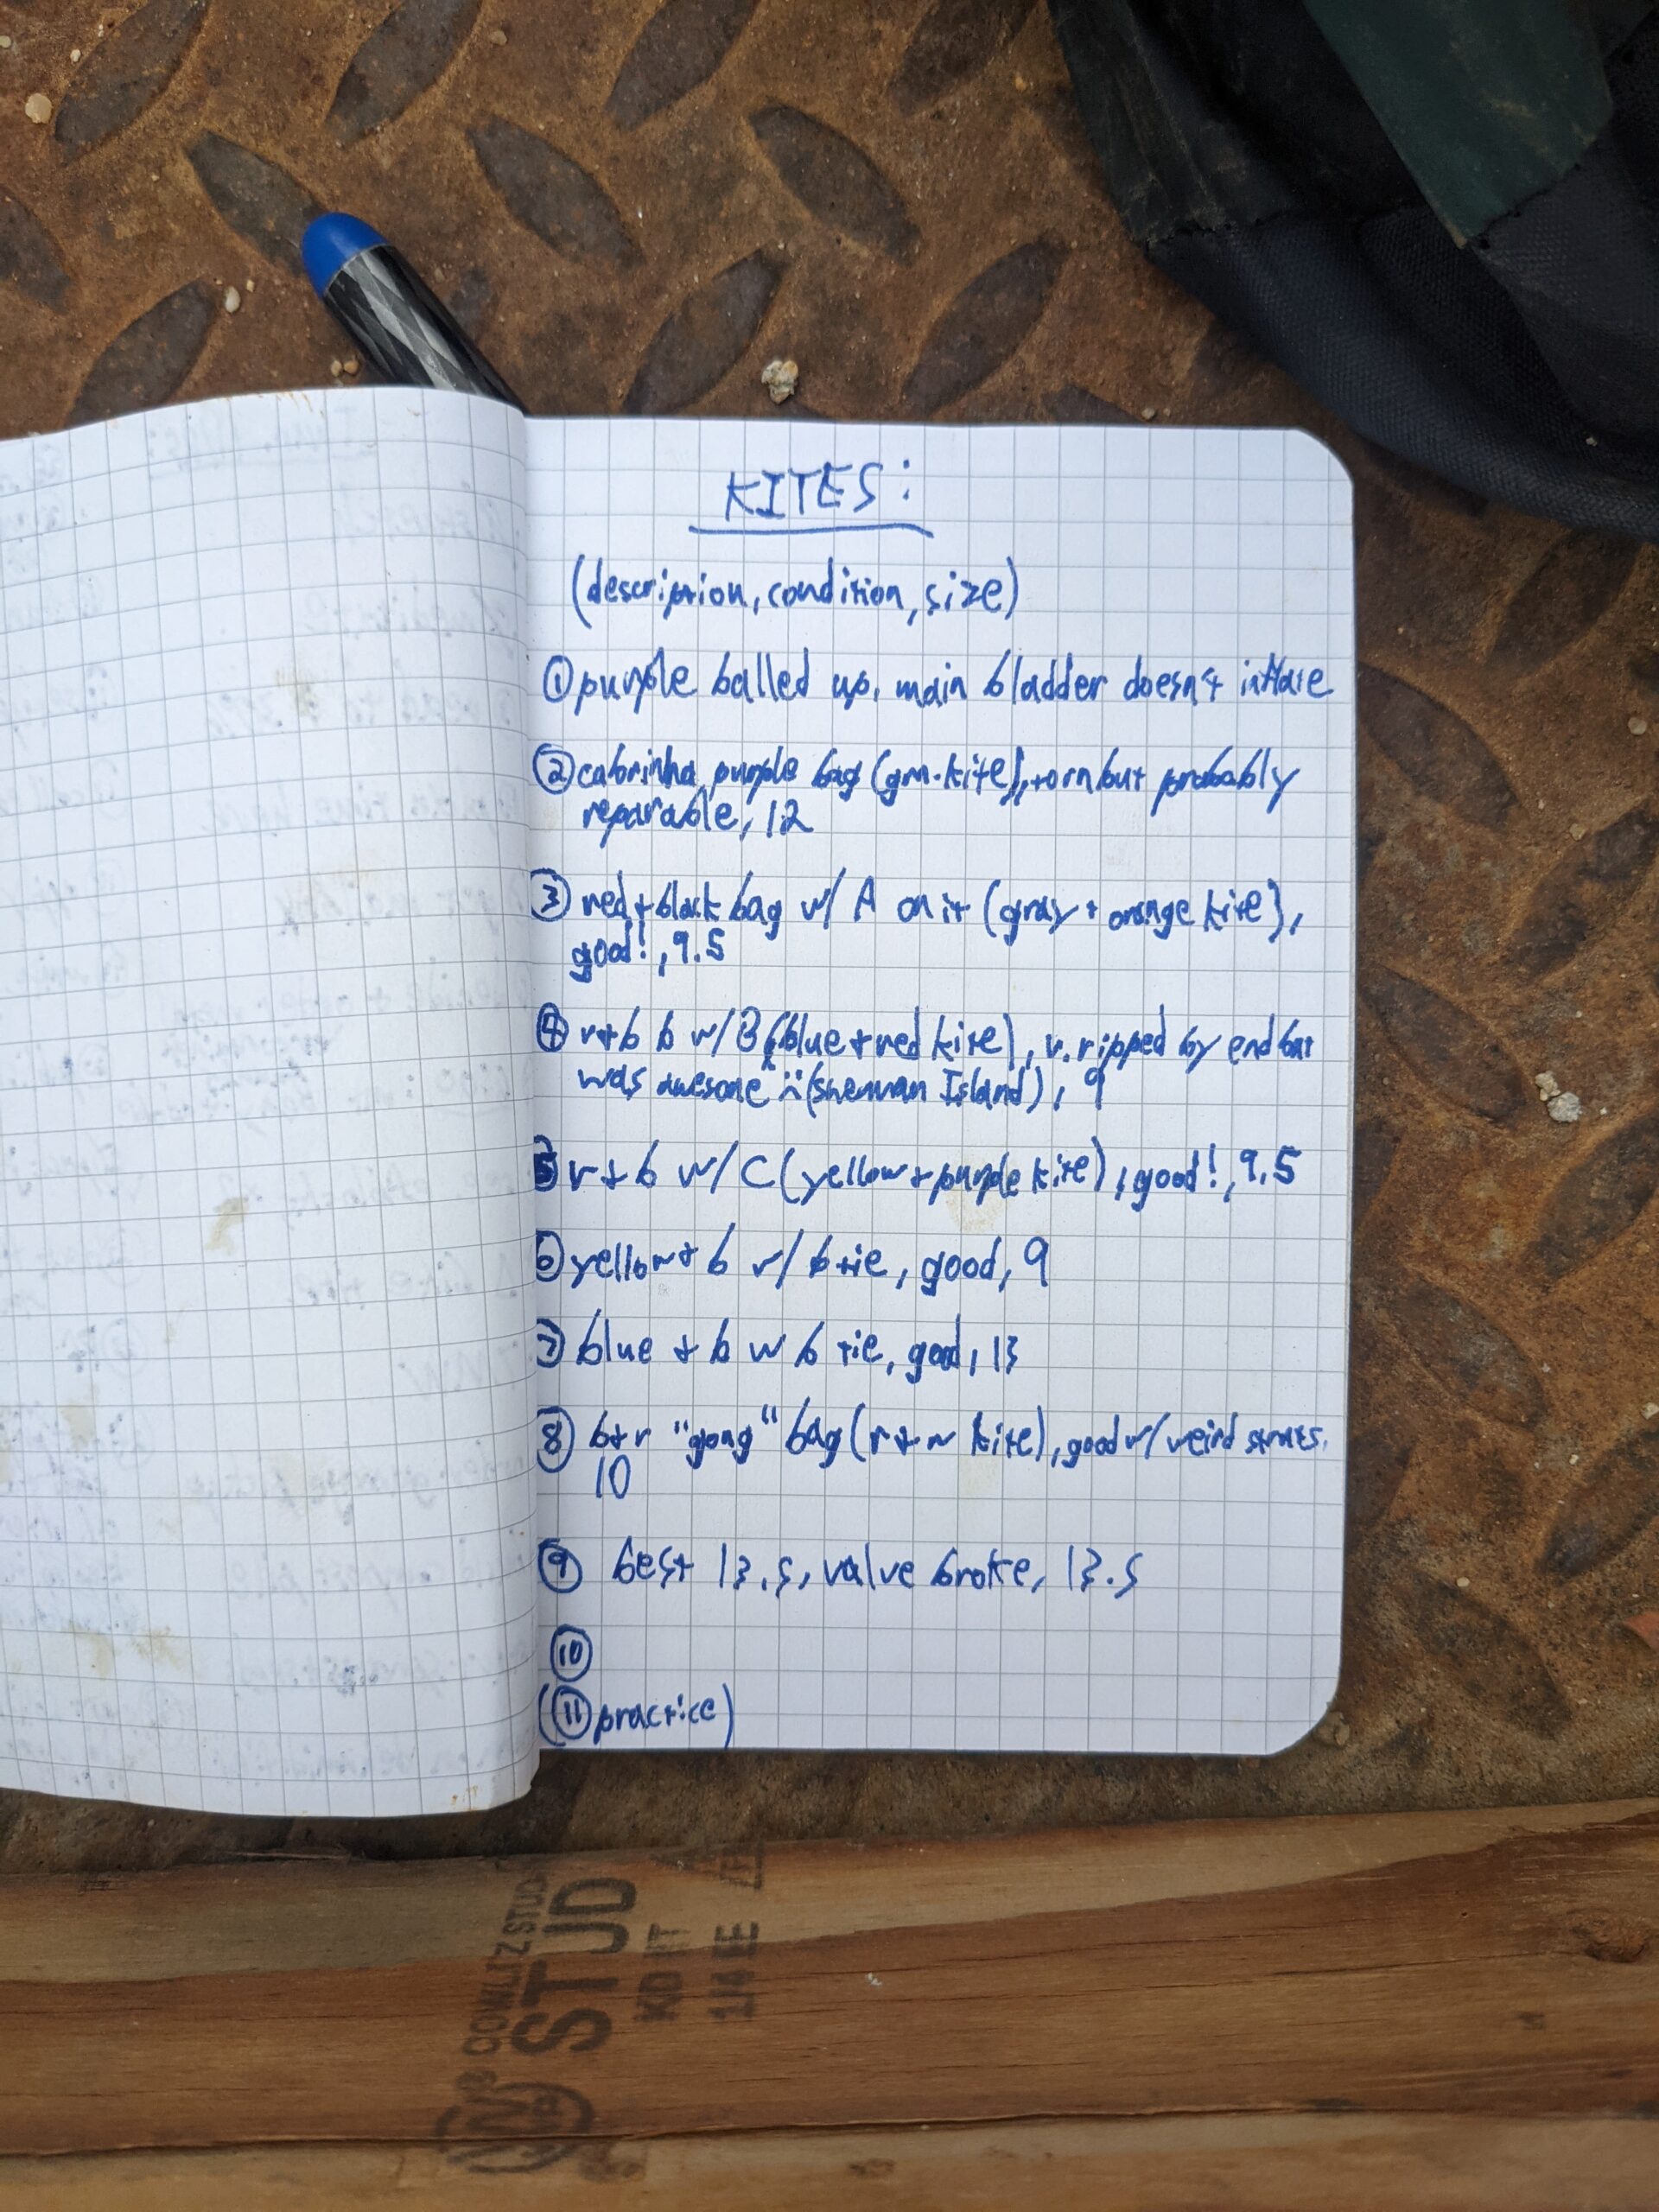 KITES:
(description, condition, size)
① purple balled up, main bladder doesnt inflate
② cabrinha purple bag (grn. kite), torn but probably
reparable, 12
③ red + black bag w/ A on it (gray + orange kite),
good!, 9.5
④ r+b b w/ B (blue + red kite), v. ripped by end but
was awesome (sherman Island), 9
⑤ r + b w/ C (yellow + purple kite), good!, 9.5
⑥ yellow + b w/ b tie, good, 9
⑦ blue + b w b tie, good, 13
⑧ b+r "gong" bag (r + w kite), good w/ weird struts,
10
⑨ best 13.5, valve broke, 13.5
⑩
(⑪ practice)
STUD
KD HT